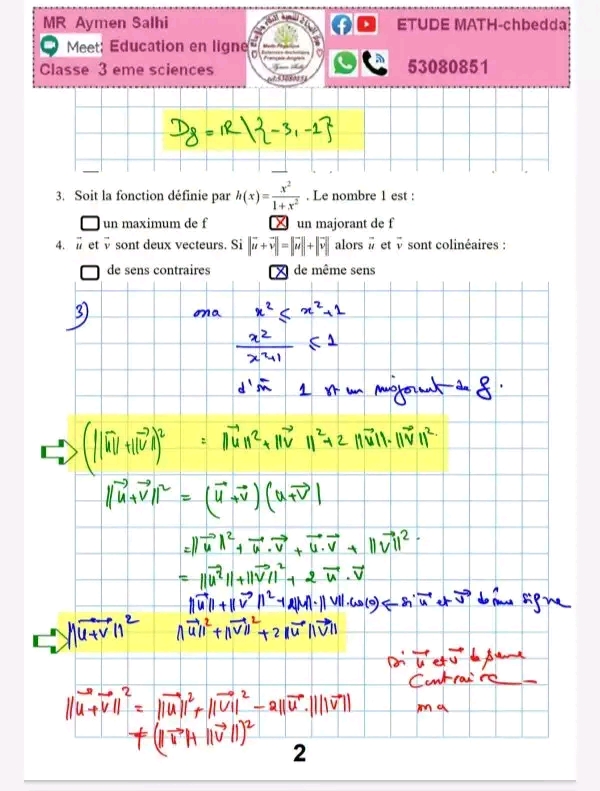 MR Aymen Salhi
Meet: Education en ligne
Classe 3 eme sciences
ETUDE MATH-chbedda
53080851
Dg = IR \ {-3, -1}
3. Soit la fonction définie par h(x) = x²/(1+x²) . Le nombre 1 est :
☐ un maximum de f ☒ un majorant de f
4. u⃗ et v⃗ sont deux vecteurs. Si ‖u⃗+v⃗‖=‖u⃗‖+‖v⃗‖ alors u⃗ et v⃗ sont colinéaires :
☐ de sens contraires ☒ de même sens
3) ona x² ⩽ x²+1
x²/(x²+1) ⩽ 1
d'où 1 est un majorant de f.
(‖u⃗‖+‖v⃗‖)² = ‖u⃗‖²+‖v⃗‖²+2‖u⃗‖.‖v⃗‖².
‖u⃗+v⃗‖² = (u⃗+v⃗)(u+v⃗)
=‖u⃗‖²+ u⃗.v⃗ + u⃗.v⃗ + ‖v⃗‖².
= ‖u⃗²‖+‖v⃗‖²+ 2 u⃗.v⃗
‖u⃗‖+‖v⃗‖²+2‖u‖.‖v‖.cos(0) ← Si u⃗ et v⃗ de même signe
‖u+v‖² ‖u⃗‖²+‖v⃗‖²+2‖u⃗‖‖v⃗‖
Si u⃗ et v⃗ de sens
Contraire
‖u⃗+v⃗‖² = ‖u⃗‖²+‖v⃗‖²-2‖u⃗‖.‖v⃗‖ ona
≠ (‖u⃗‖+‖v⃗‖)²
2